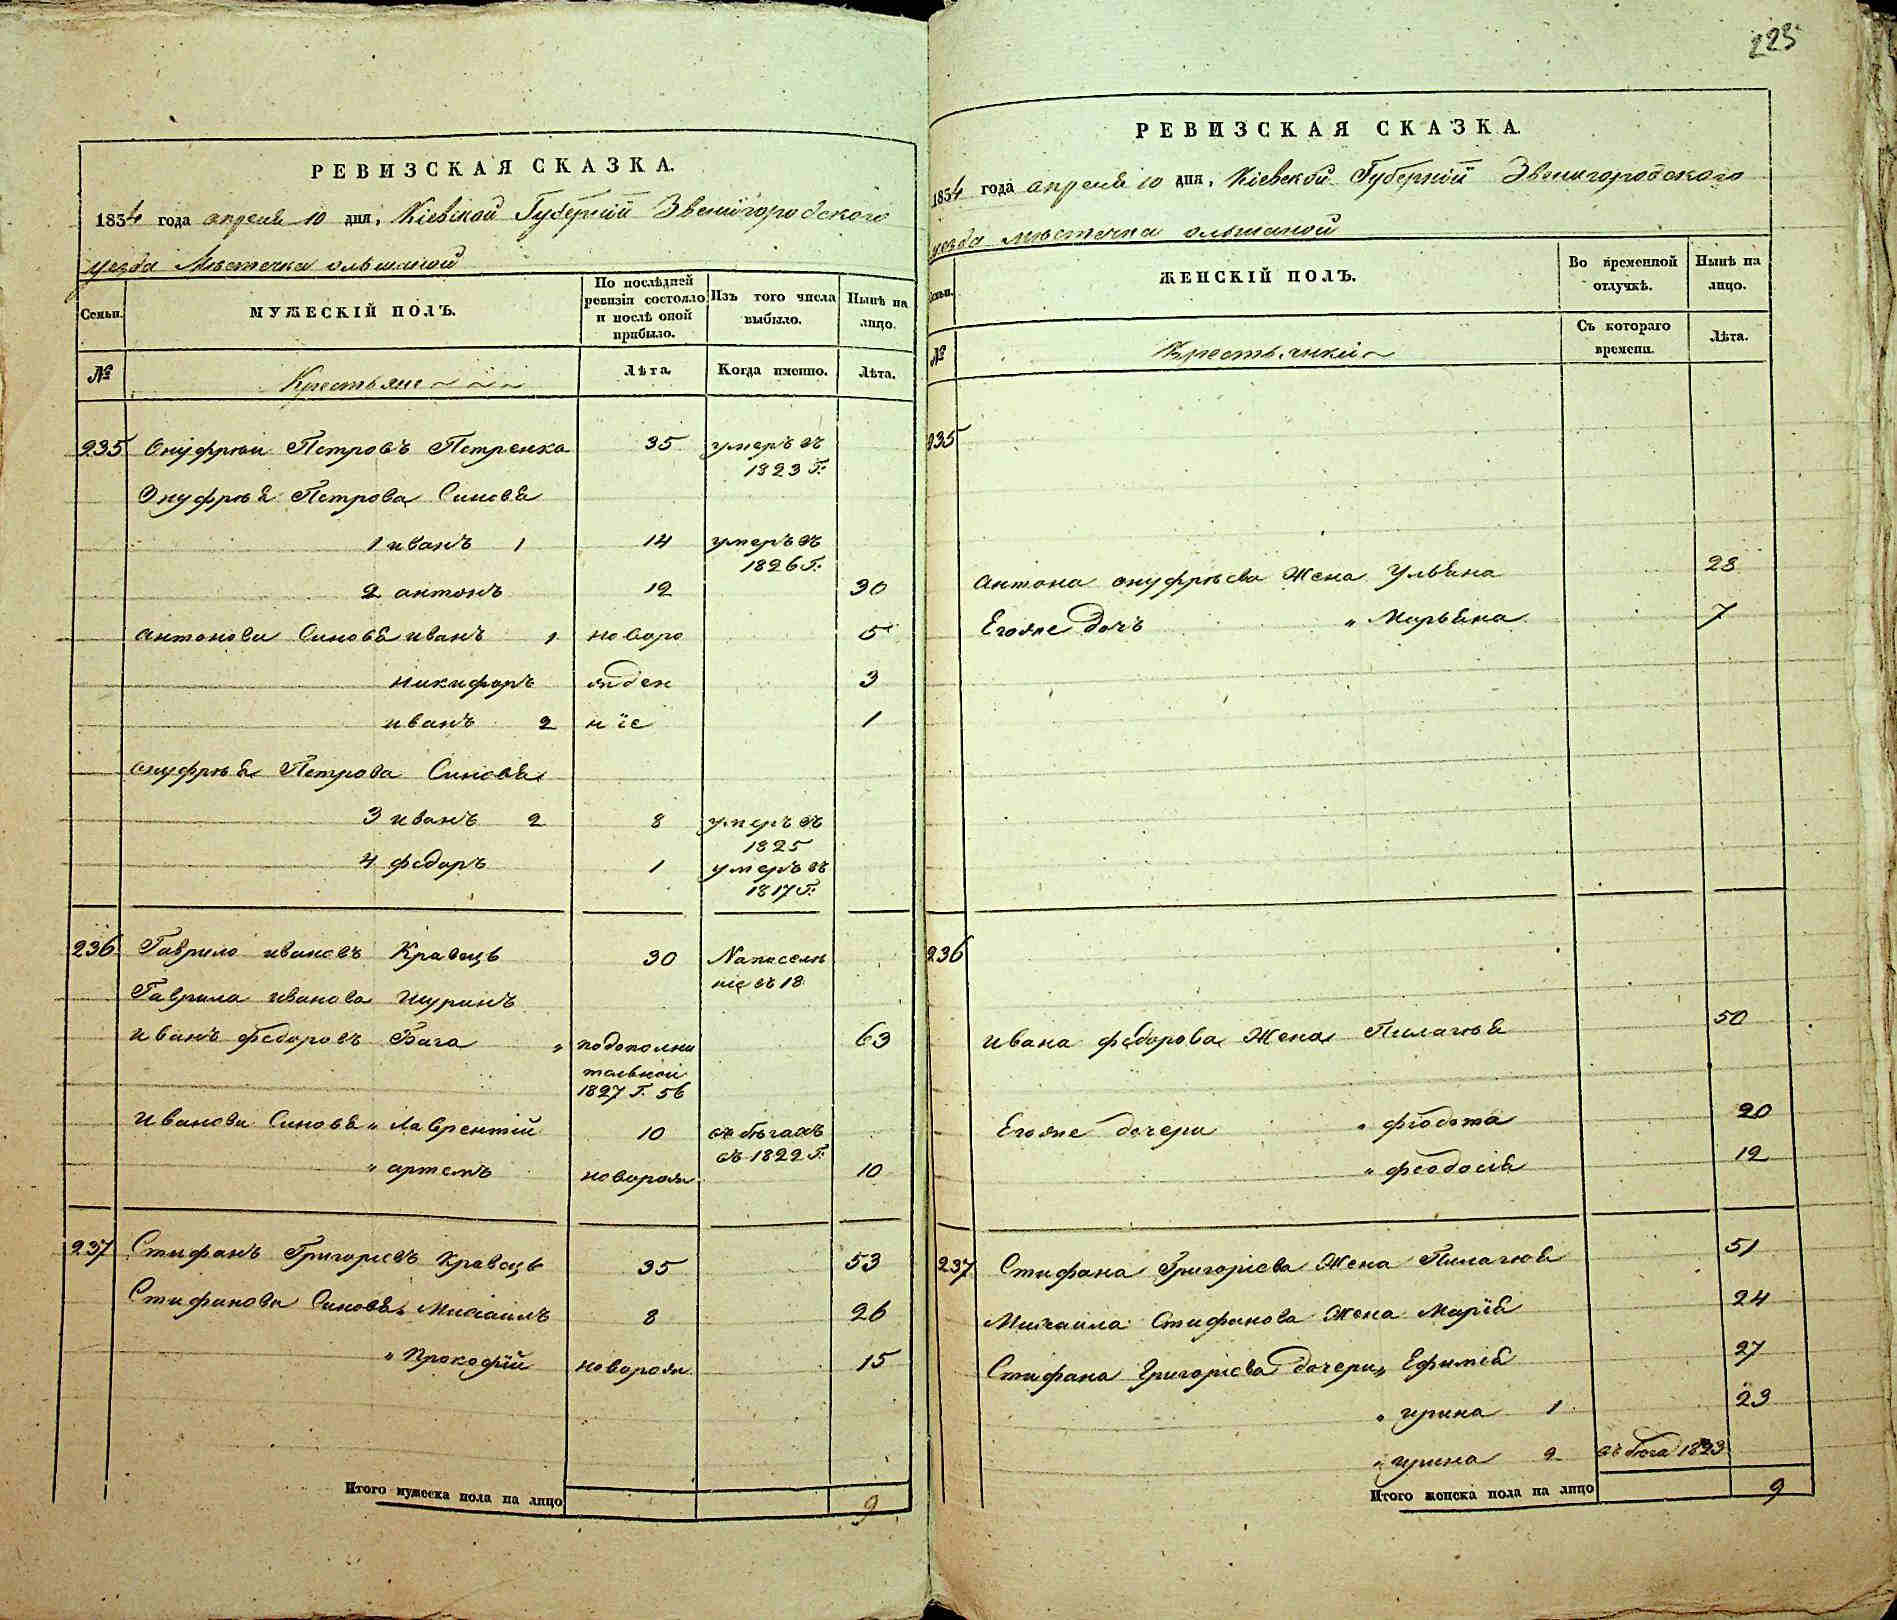 РЕВИЗСКАЯ СКАЗКА.
1834 года апреля 10 дня, Кіевской Губерніи Звенигородского
уезда Местечка ольшаной
Семьи.
МУЖЕСКІЙ ПОЛЪ.
По послѣдней ревизіи состояло и послѣ оной прибыло.
Изъ того числа выбыло.
Нынѣ на лицо.
№
Крестьяне
Лѣта.
Когда именно.
Лѣта.
235 Онуфрѣи Петровъ Петренко 35 умеръ въ
1823 Г.
Онуфрѣя Петрова Синовя
1 иванъ 1 14 умеръ въ
1826 Г.
2 антонъ 12 30
антонови Синовя иванъ 1 новоро 5
никифоръ жден 3
иванъ 2 ніе 1
онуфрѣя Петрова Синовя
3 иванъ 2 8 умеръ въ
1825
4 федоръ 1 умеръ въ
1817 Г.
236 Гаврило ивановъ Кравець 30 На поселе
ніе въ 18
Гаврила иванова шуринъ
иванъ федоровъ Бага " подополни 63
тельной
1827 Г. 56
Иванови Синовя " Лаврентій 10 въ бѣгахъ
съ 1822 Г.
" артемъ новорож 10
237 Стифанъ Григоріевъ Кравець 35 53
Стифанови Синовя Михаилъ 8 26
" Прокофій новорож 15
Итого мужеска пола на лицо 9
223
РЕВИЗСКАЯ СКАЗКА.
1834 года апреля 10 дня, Кіевской Губерніи Звенигородского
уезда местечка ольшаной
Семьи.
ЖЕНСКІЙ ПОЛЪ.
Во временной отлучкѣ.
Нынѣ на лицо.
№
Крестьянки
Съ котораго времени.
Лѣта.
235
антона онуфрѣева Жена Ульяна 28
Егоже дочъ " Марьяна 7
236
ивана федорова Жена Пилагѣя 50
Егоже дочери " федота 20
" феодосія 12
237 Стифана Григоріева Жена Пилагѣя 51
Михаила Стифанова Жена Марія 24
Стифана Григоріева дочери " Ефимія 27
" ирина 1 23
" ирина 2 въ бѣга 1823
Итого женска пола на лицо 9